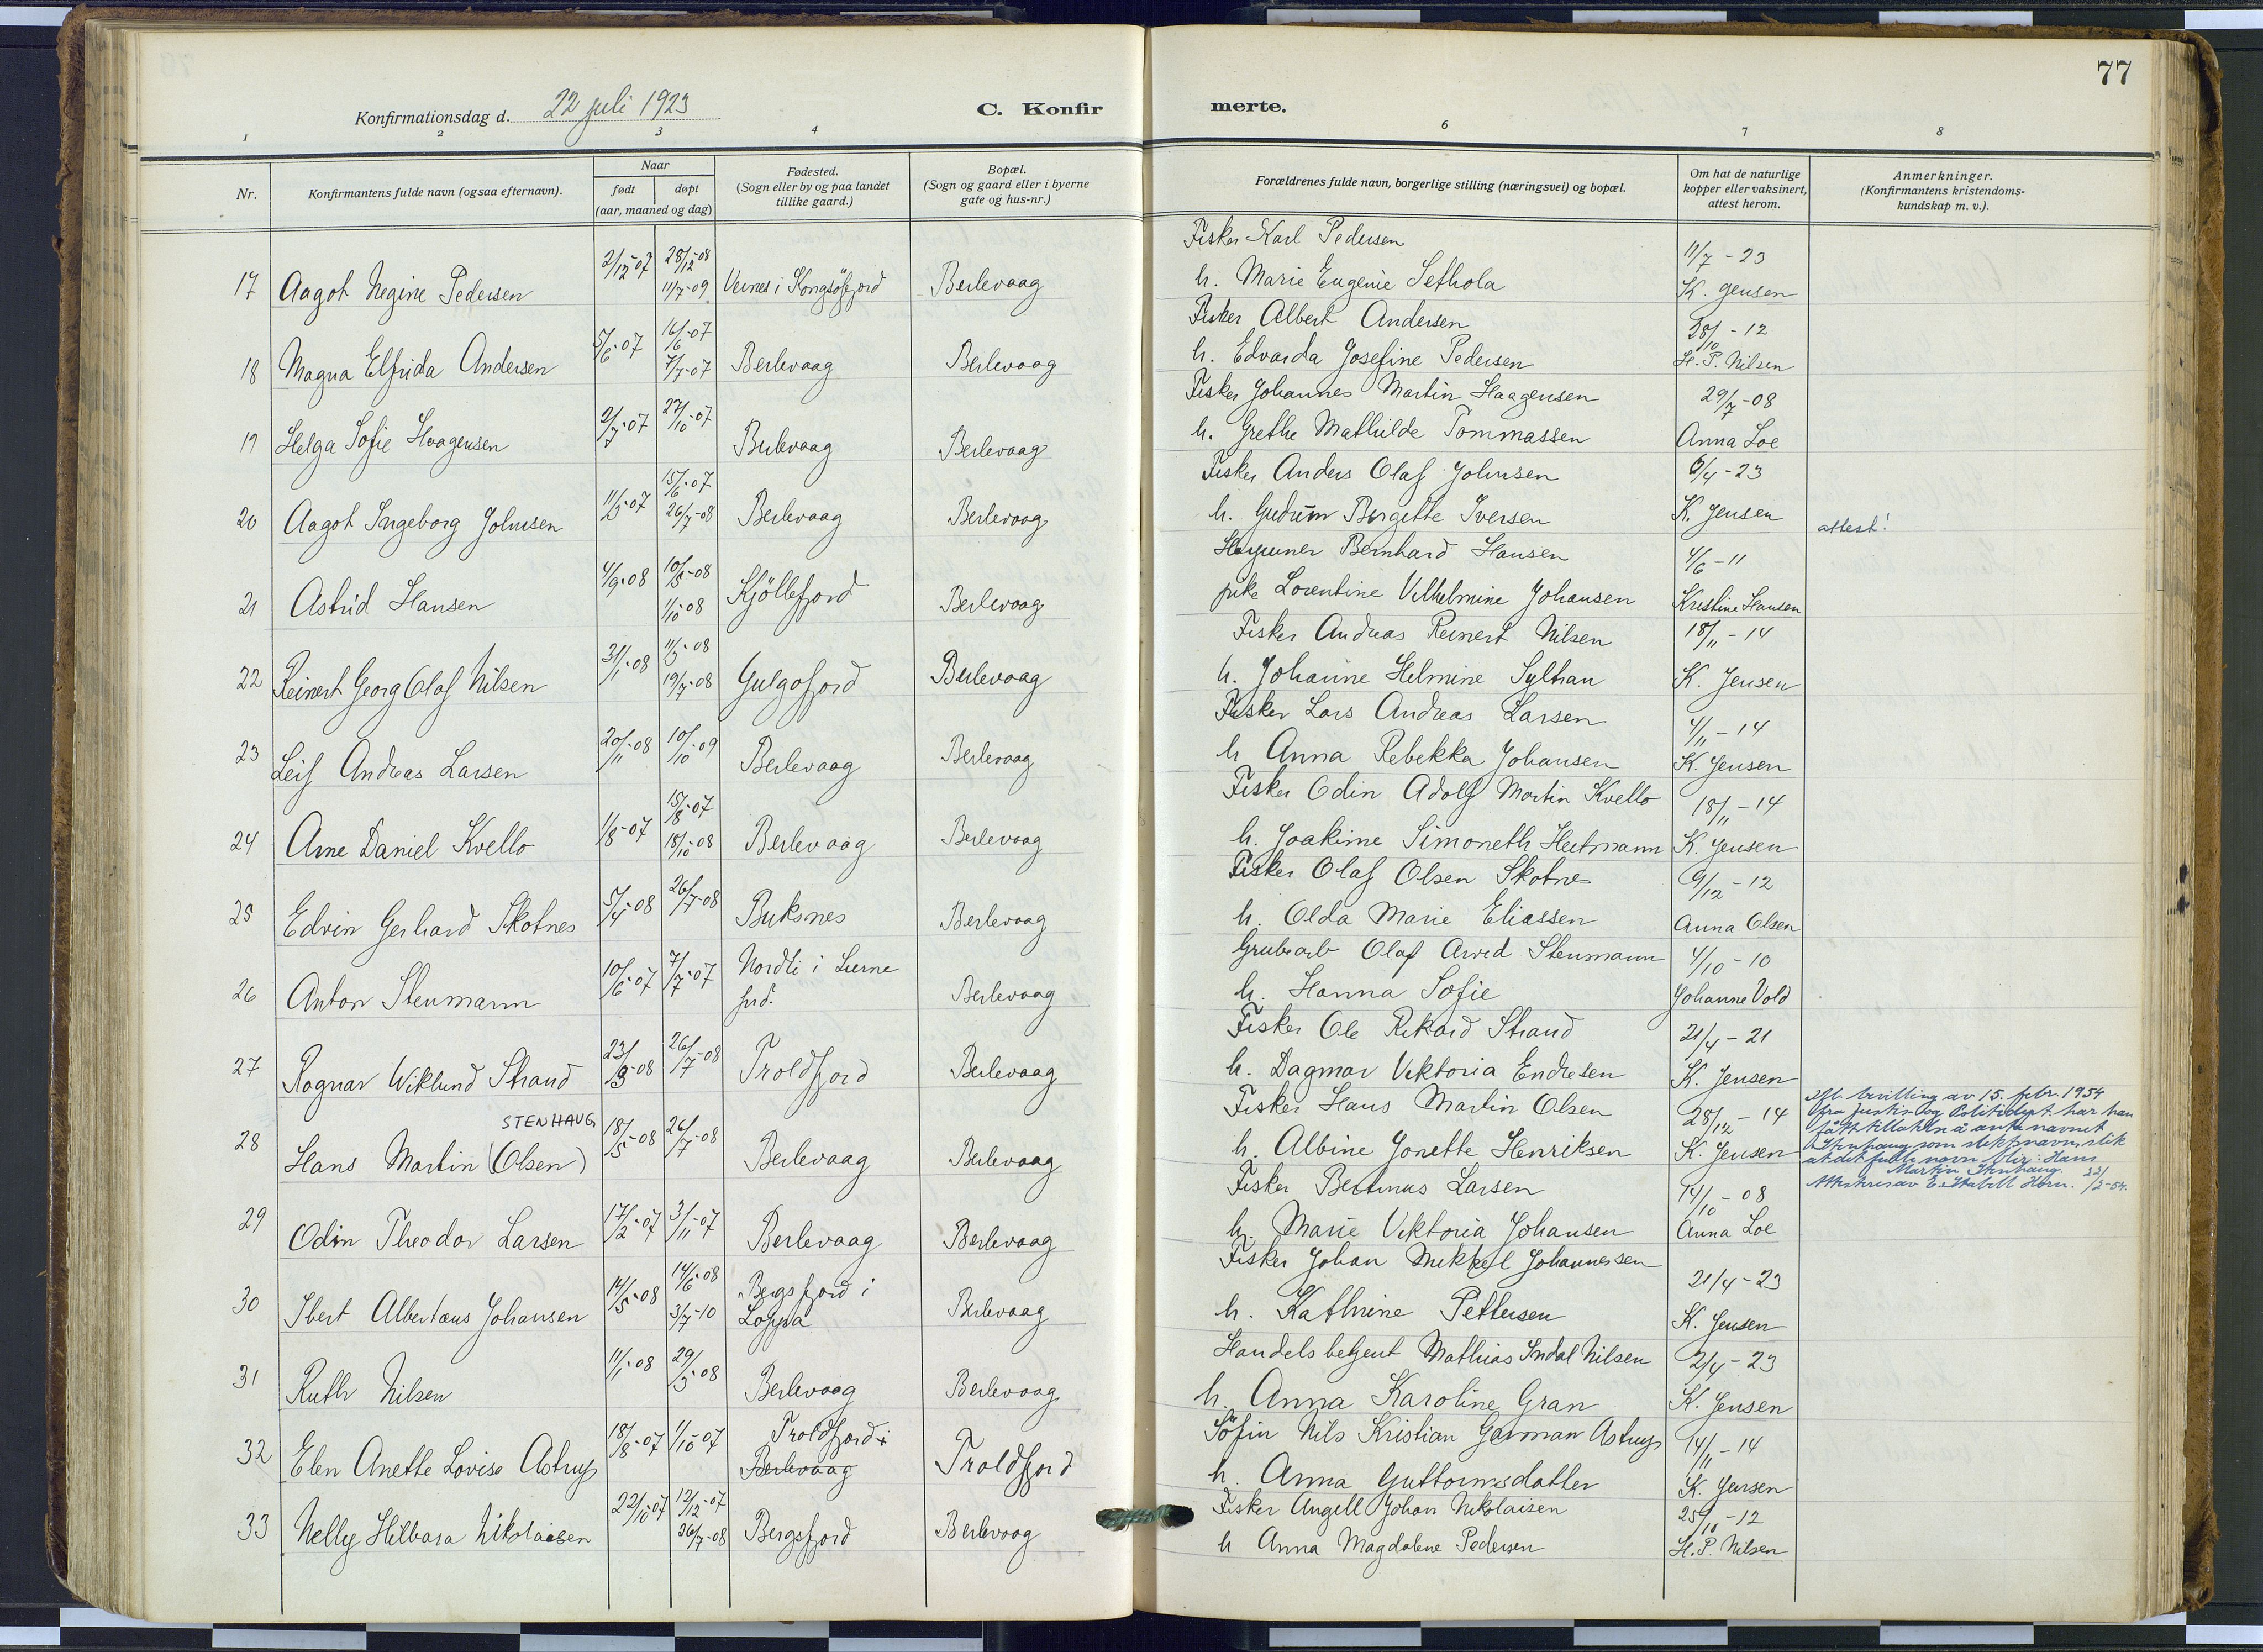 77
Konfirmationsdag d. 22 juli 1923
C. Konfir merte.
1 2 3 4 6 7 8
Nr.
Konfirmantens fulde navn (ogsaa efternavn).
Naar
født døpt
(aar, maaned og dag)
Fødested.
(Sogn eller by og paa landet
tillike gaard.)
Bopæl.
(Sogn og gaard eller i byerne
gate og hus-nr.)
Forældrenes fulde navn, borgerlige stilling (næringsvei) og bopæl.
Om hat de naturlige
kopper eller vaksinert,
attest herom.
Anmerkninger.
(Konfirmantens kristendoms-
kundskap m. v.).
17 Aagot Regine Pedersen 2/12-07 28/12-08 11/7-09 Veines i Kongsöfjord Berlevaag
Fisker Karl Pedersen 11/7-23
h. Marie Eugenie Sethola K. Jensen
18 Magna Elfrida Andersen 5/6-07 16/6-07 7/7-07 Berlevaag Berlevaag
Fisker Albert Andersen 28/10-12
h. Edvarda Josefine Pedersen H. P. Nilsen
19 Helga Sofie Haagensen 2/7-07 27/10-07 Berlevaag Berlevaag
Fisker Johannes Martin Haagensen 29/7-08
h. Grethe Mathilde Tommassen Anna Loe
20 Aagot Ingeborg Johnsen 11/5-07 15/6-07 26/7-08 Berlevaag Berlevaag
Fisker Anders Olaf Johnsen 6/4-23
h. Gudrun Birgitte Iversen K. Jensen attest!
21 Astrid Hansen 4/9-08 10/5-08 1/10-08 Kjöllefjord Berlevaag
Bernhard Hansen 4/6-11
pike Lorentine Vilhelmine Johansen Kristine Hansen
22 Reinert Georg Olaf Nilsen 31/1-08 11/5-08 19/7-08 Gulgofjord Berlevaag
Fisker Andreas Reinert Nilsen 18/11-14
h. Johanne Helmine Sylhan K. Jensen
23 Leif Andreas Larsen 20/11-08 10/10-09 Berlevaag Berlevaag
Fisker Lars Andreas Larsen 4/11-14
h Anna Rebekka Johansen K. Jensen
24 Arne Daniel Kvello 1/8-07 15/8-07 18/10-08 Berlevaag Berlevaag
Fisker Odin Adolf Martin Kvello 18/11-14
h. Joakime Simoneth Heitmann K. Jensen
25 Edvin Gerhard Skotnes 5/4-08 26/7-08 Buksnes Berlevaag
Fisker Olaf Olsen Skotnes 9/12-12
h. Olda Marie Eliassen Anna Olsen
26 Anton Stenmann 10/6-07 7/7-07 Nordli i Lierne prd. Berlevaag
Grubearb Olaf Arvid Stenmann 4/10-10
h. Hanna Sofie Johanne Vold
27 Ragnar Wiklund Strand 23/3-08 26/7-08 Troldfjord Berlevaag
Fisker Ole Rikard Strand 21/4-21
h. Dagmar Viktoria Endresen K. Jensen
STENHAUG
28 Hans Martin (Olsen) 18/5-08 26/7-08 Berlevaag Berlevaag
Fisker Hans Martin Olsen 28/12-14
h. Albine Jonette Henriksen K. Jensen
Iflt. bevilling av 15. febr. 1954
fra Justis- og Politidept. har han
fått tillatelse å anta navnet
Stenhaug som slektsnavn, slik
at det fulle navn blir: Hans
Martin Stenhaug. 22/2-54.
29 Odin Theodor Larsen 17/2-07 3/11-07 Berlevaag Berlevaag
Fisker Bertinus Larsen 14/10-08
h. Marie Viktoria Johansen Anna Loe
30 Ibert Albertæus Johansen 14/5-08 14/6-08 3/7-10 Bergsfjord i Loppa Berlevaag
Fisker Johan Mikkel Johannessen 21/4-23
h. Kathrine Pettersen K. Jensen
31 Ruth Nilsen 11/1-08 29/3-08 Berlevaag Berlevaag
Handelsbetjent Mathias Indal Nilsen 2/4-23
h. Anna Karoline Gran K. Jensen
32 Elen Anette Lovise Astrup 18/8-07 1/10-07 Troldfjord i Berlevaag Troldfjord
Söfin Nils Kristian German Astrup 14/11-14
h. Anna Guttormsdatter K. Jensen
33 Nelly Hilbara Nikolaisen 22/10-07 12/12-07 26/7-08 Bergsfjord Berlevaag
Fisker Angell Johan Nikolaisen 25/10-12
h Anna Magdalene Pedersen H. P. Nilsen